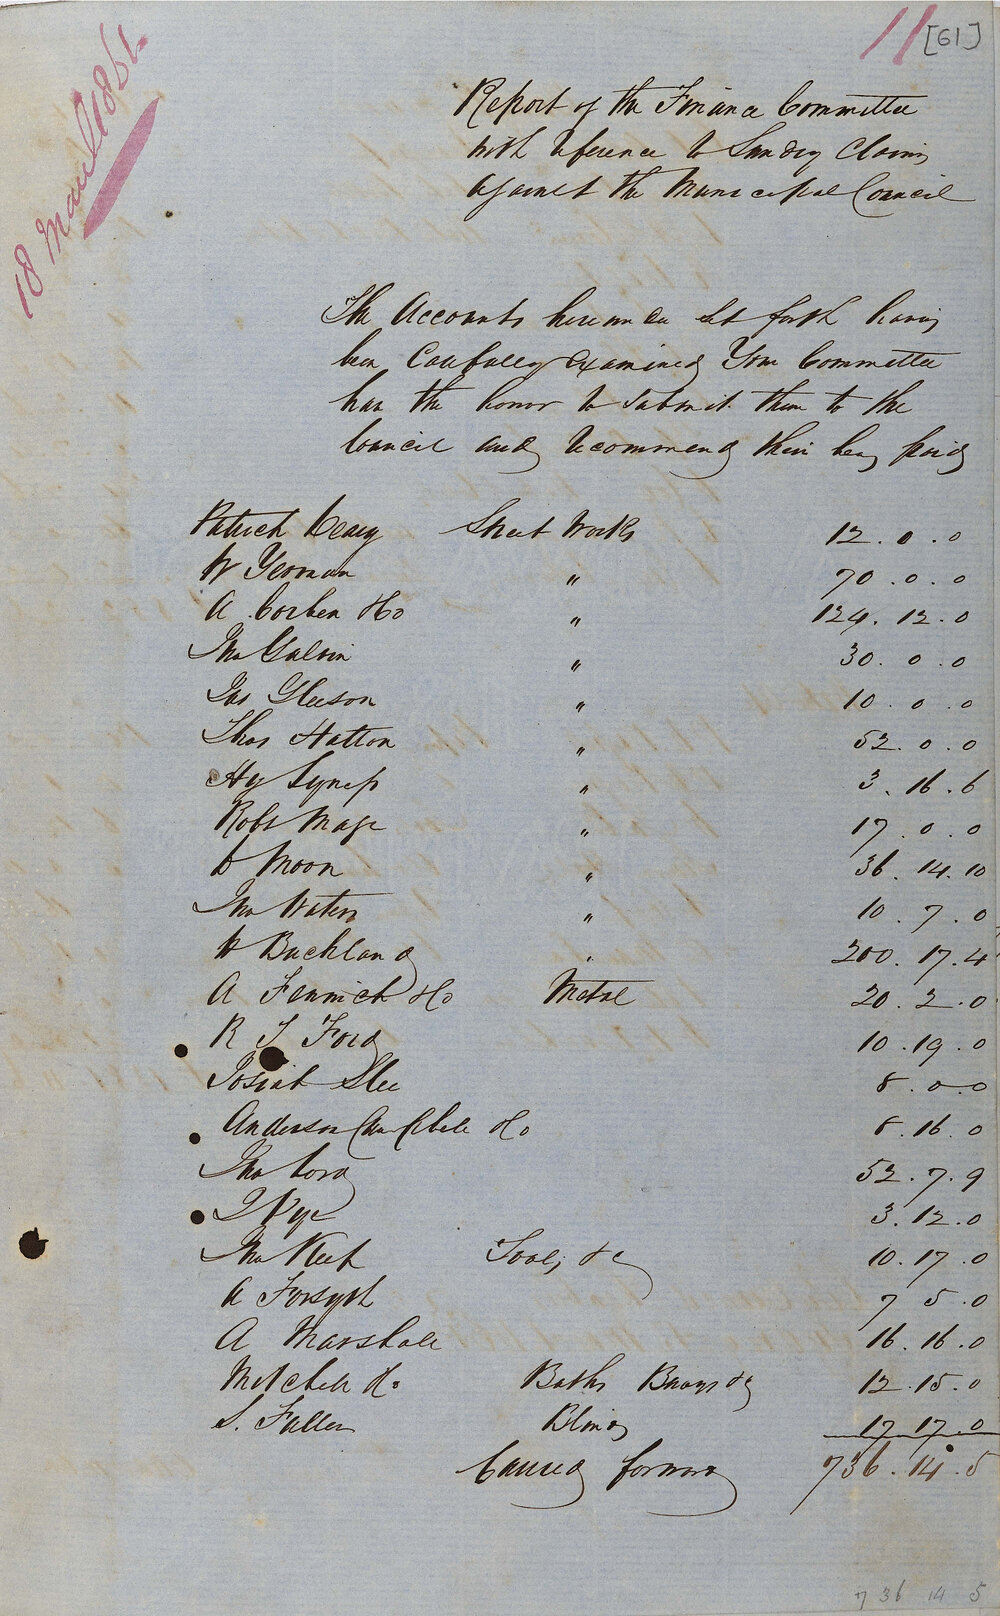 11 [61]
18 March 1861.
Report of the Finance Committee
with reference to Sundry Claims
against the Municipal Council
The Accounts hereunder set forth having
been Carefully Examined Your Committee
has the honor to submit them to the
Council and recommend their being paid
Patrick Street Works 12 . 0 . 0
W Yeoman " 70 . 0 . 0
A Corben & Co " 124 . 12 . 0
Jno Galvin " 30 . 0 . 0
Jas Gleeson " 10 . 0 . 0
Thos Hatton " 52 . 0 . 0
Hy " 3 . 16 . 6
Robt " 17 . 0 . 0
D Moon " 36 . 14 . 10
Jno Waters " 10 . 7 . 0
W Buckland " 200 . 17 . 4
A Fenwick & Co Metal 20 . 2 . 0
R J Ford 10 . 19 . 0
Josiah Slee 8 . 0 . 0
Anderson Campbell & Co 8 . 16 . 0
Jno 52 . 7 . 9
J Pye 3 . 12 . 0
Jno Keep Tools, &c 10 . 17 . 0
A Forsyth 7 5 . 0
A Marshall 16 . 16 . 0
Mitchell & Co Baths Buoys &c 12 . 15 . 0
S. Fuller Blinds 17 17 . 0
Carried forward 736 . 14 . 5
736 14 5